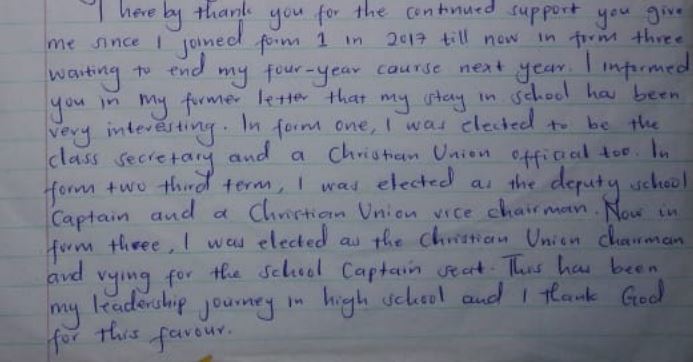 I hereby thank you for the continued support you give
me since I joined form 1 in 2017 till now in form three
waiting to end my four-year course next year. I informed
you in my former letter that my stay in school has been
very interesting. In form one, I was elected to be the
class secretary and a Christian Union official too. In
form two third term, I was elected as the deputy school
Captain and a Christian Union vice chairman. Now in
form three, I was elected as the Christian Union chairman
and vying for the school Captain seat. This has been
my leadership journey in high school and I thank God
for this favour.